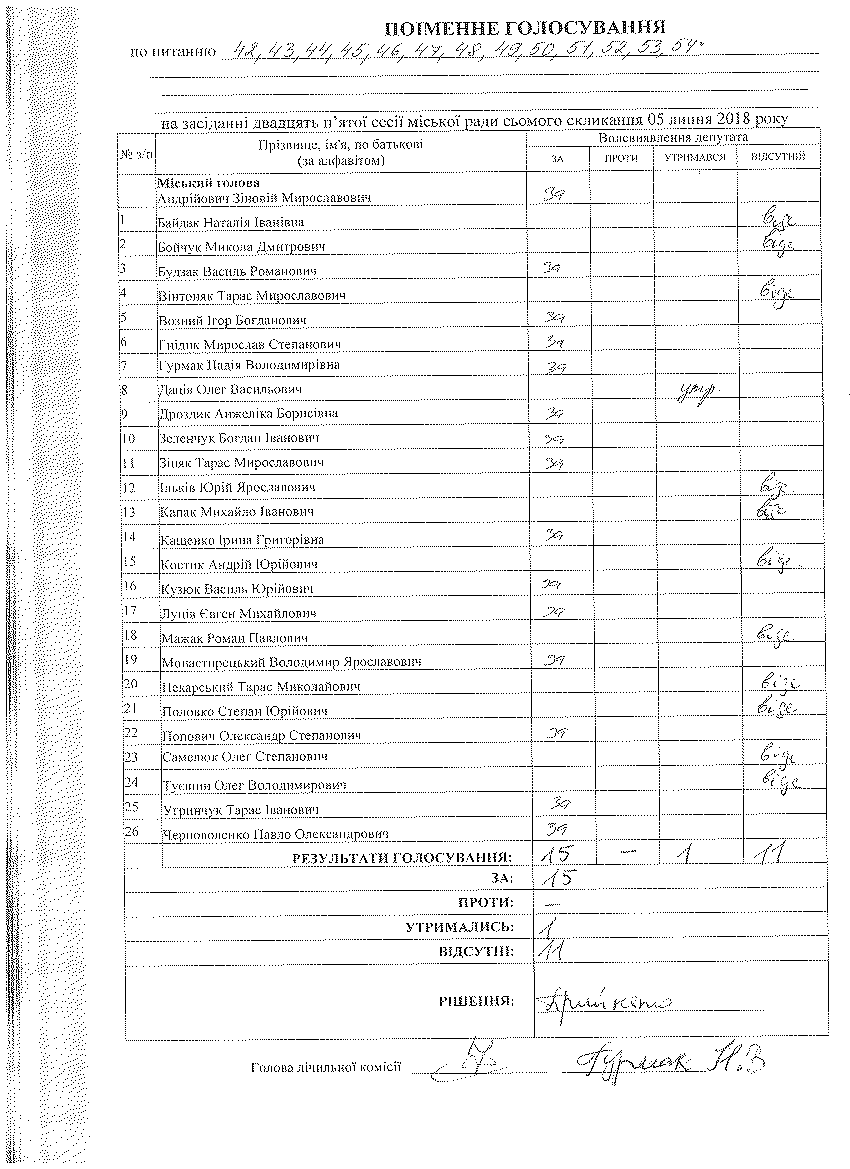 ПОІМЕННЕ ГОЛОСУВАННЯ
по питанню 42, 43, 44, 45, 46, 47, 48, 49, 50, 51, 52, 53, 54
на засіданні двадцять п'ятої сесії міської ради сьомого скликання 05 липня 2018 року
№ з/п Прізвище, ім'я, по батькові (за алфавітом) Волевиявлення депутата
ЗА ПРОТИ УТРИМАВСЯ ВІДСУТНІЙ
Міський голова
Андрійович Зіновій Мирославович за
1 Байдак Наталія Іванівна відс
2 Бойчук Микола Дмитрович відс
3 Булзак Василь Романович за
4 Вінтоняк Тарас Мирославович відс
5 Возний Ігор Богданович за
6 Гнідик Мирослав Степанович за
7 Гурмак Надія Володимирівна за
8 Даців Олег Васильович утр.
9 Дроздик Анжеліка Борисівна за
10 Зеленчук Богдан Іванович за
11 Зіняк Тарас Мирославович за
12 Ільків Юрій Ярославович відс
13 Капак Михайло Іванович відс
14 Кащенко Ірина Григорівна за
15 Костик Андрій Юрійович відс
16 Кузюк Василь Юрійович за
17 Луців Євген Михайлович за
18 Мажак Роман Павлович відс
19 Монастирецький Володимир Ярославович за
20 Пекарський Тарас Миколайович відс
21 Половко Степан Юрійович відс
22 Попович Олександр Степанович за
23 Самелюк Олег Степанович відс
24 Олег Володимирович відс
25 Угринчук Тарас Іванович за
26 Черноволенко Павло Олександрович за
РЕЗУЛЬТАТИ ГОЛОСУВАННЯ: 15 — 1 11
ЗА: 15
ПРОТИ: —
УТРИМАЛИСЬ: 1
ВІДСУТНІ: 11
РІШЕННЯ: Прийнято
Голова лічильної комісії Гурмак Н.В